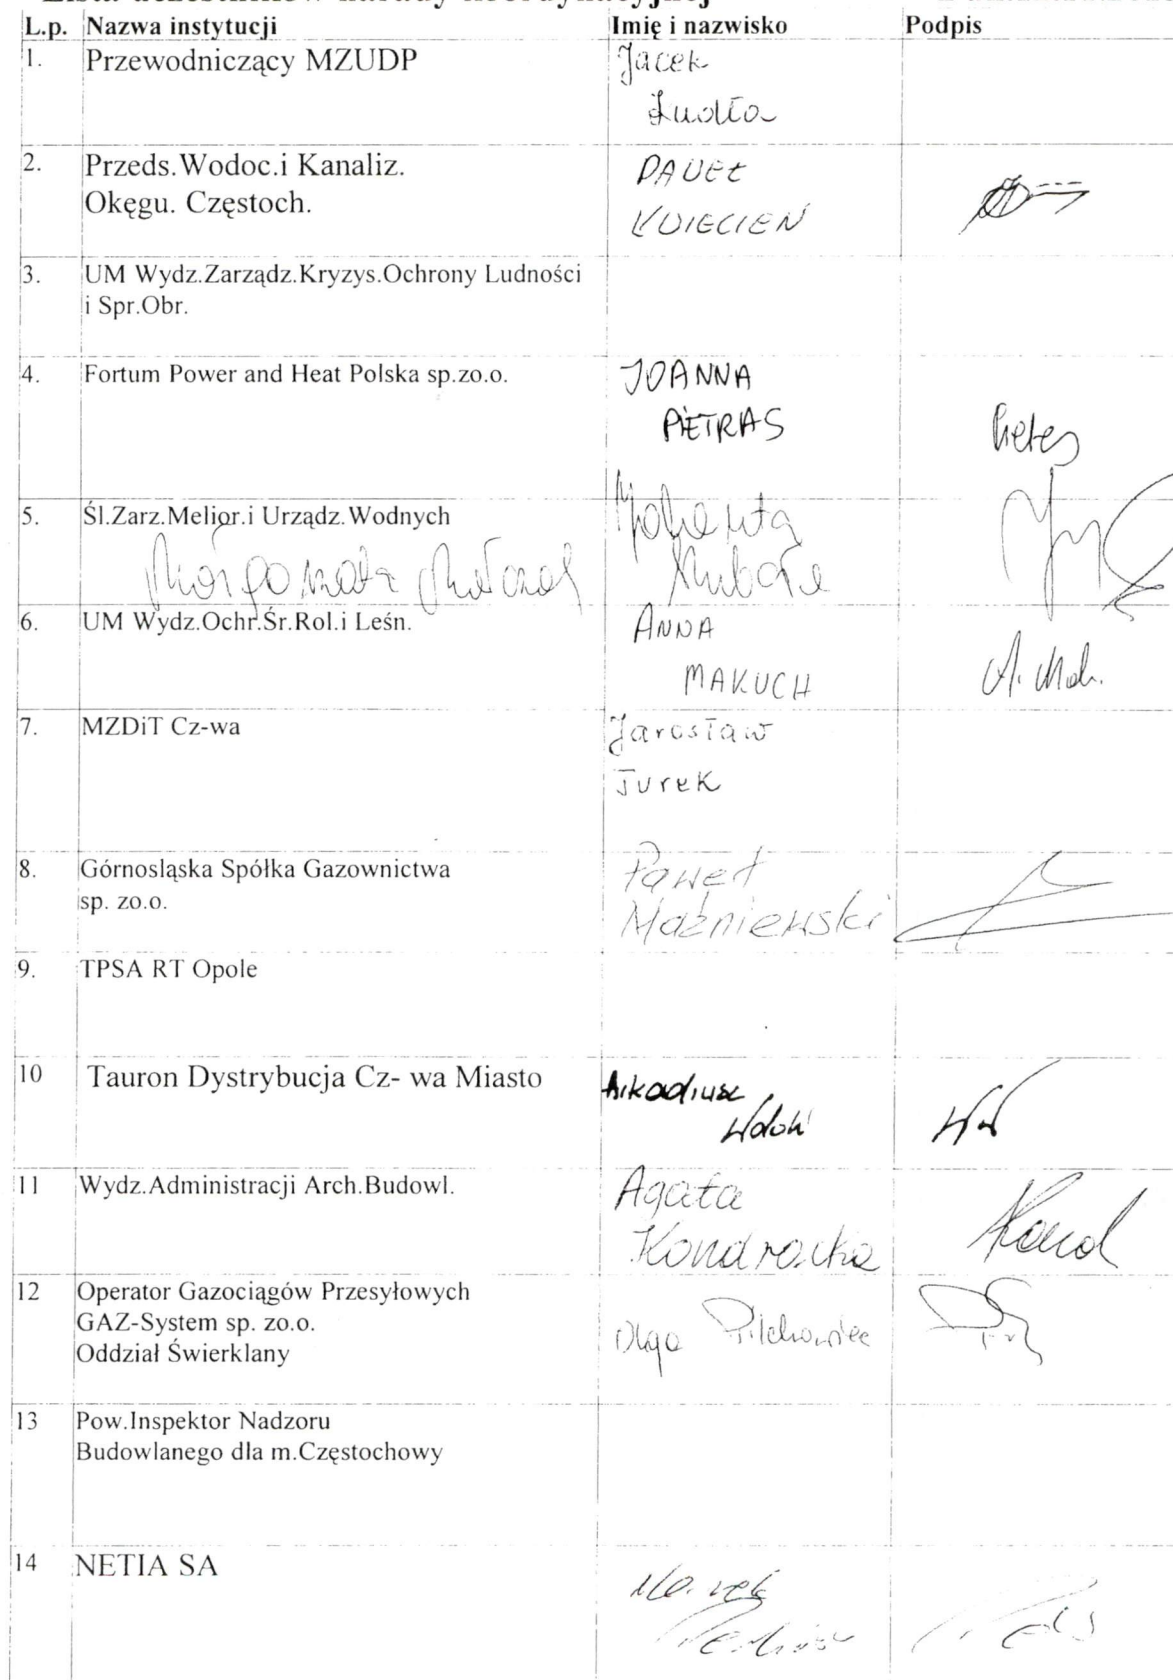 L.p. Nazwa instytucji Imię i nazwisko Podpis
1. Przewodniczący MZUDP Jacek
2. Przeds.Wodoc.i Kanaliz. PAWEŁ
Okęgu. Częstoch. KWIECIEŃ
3. UM Wydz.Zarządz.Kryzys.Ochrony Ludności
i Spr.Obr.
4. Fortum Power and Heat Polska sp.zo.o. JOANNA
PIETRAS
5. Śl.Zarz.Melior.i Urządz.Wodnych Jolanta
Małgorzata
6. UM Wydz.Ochr.Śr.Rol.i Leśn. ANNA
MAKUCH A. Mak.
7. MZDiT Cz-wa Jarosław
Jurek
8. Górnosląska Spółka Gazownictwa Paweł
sp. zo.o. Maźniewski
9. TPSA RT Opole
10 Tauron Dystrybucja Cz- wa Miasto Arkadiusz
11 Wydz.Administracji Arch.Budowl. Agata
Kondracka
12 Operator Gazociągów Przesyłowych
GAZ-System sp. zo.o. Olga
Oddział Świerklany
13 Pow.Inspektor Nadzoru
Budowlanego dla m.Częstochowy
14 NETIA SA Marek